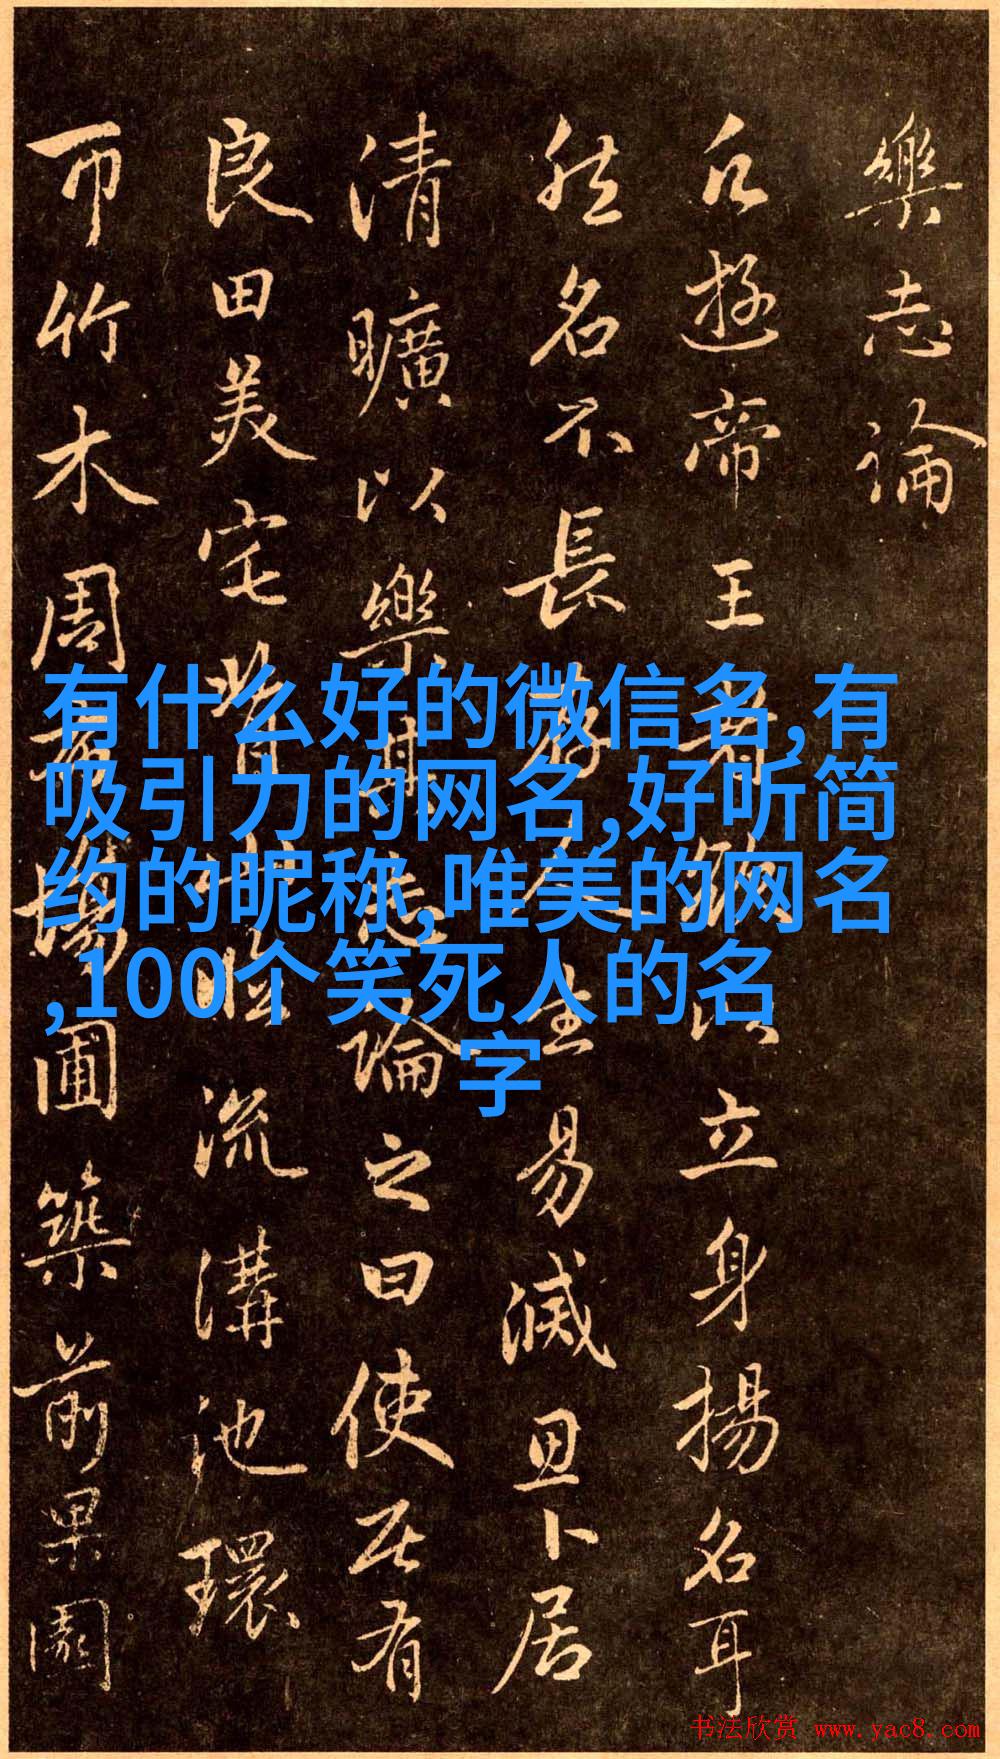 樂志論
凡遊帝王者欲以立身揚名耳
然名不長人生易滅卜居
清曠以樂其志論之曰使居有
良田美宅背山臨流溝池環
帀竹木周布場圃築前果園
有什么好的微信名,有
吸引力的网名,好听简
约的昵称,唯美的网名
,100个笑死人的名
字
书法欣赏 www.yac8.com